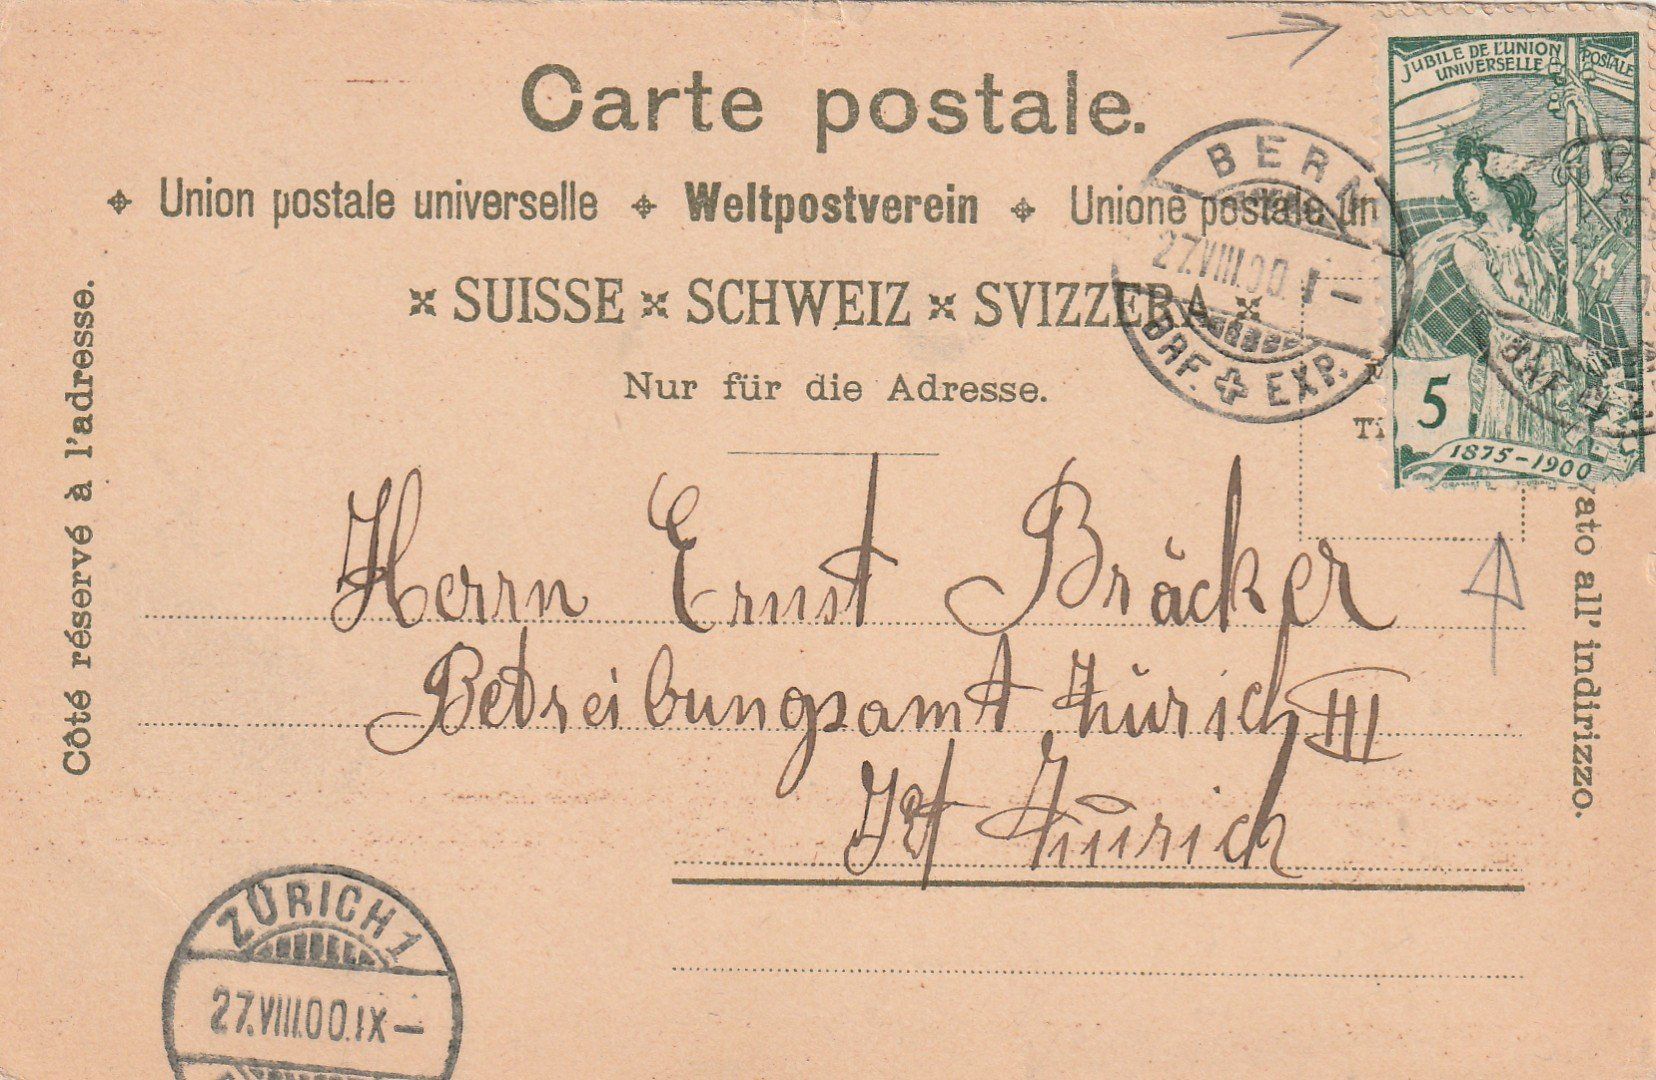 Carte postale.
JUBILE DE L'UNION POSTALE
UNIVERSELLE
Union postale universelle Weltpostverein Unione postale un
SUISSE SCHWEIZ SVIZZERA
Nur für die Adresse.
BERN
27.VIII.00.
BRF. EXP.
5
1875-1900
Côté réservé à l'adresse.
vato all' indirizzo.
Herrn Ernst Bräcker
Betreibungsamt Zürich III
Zürich
ZÜRICH 1
27.VIII.00.IX-